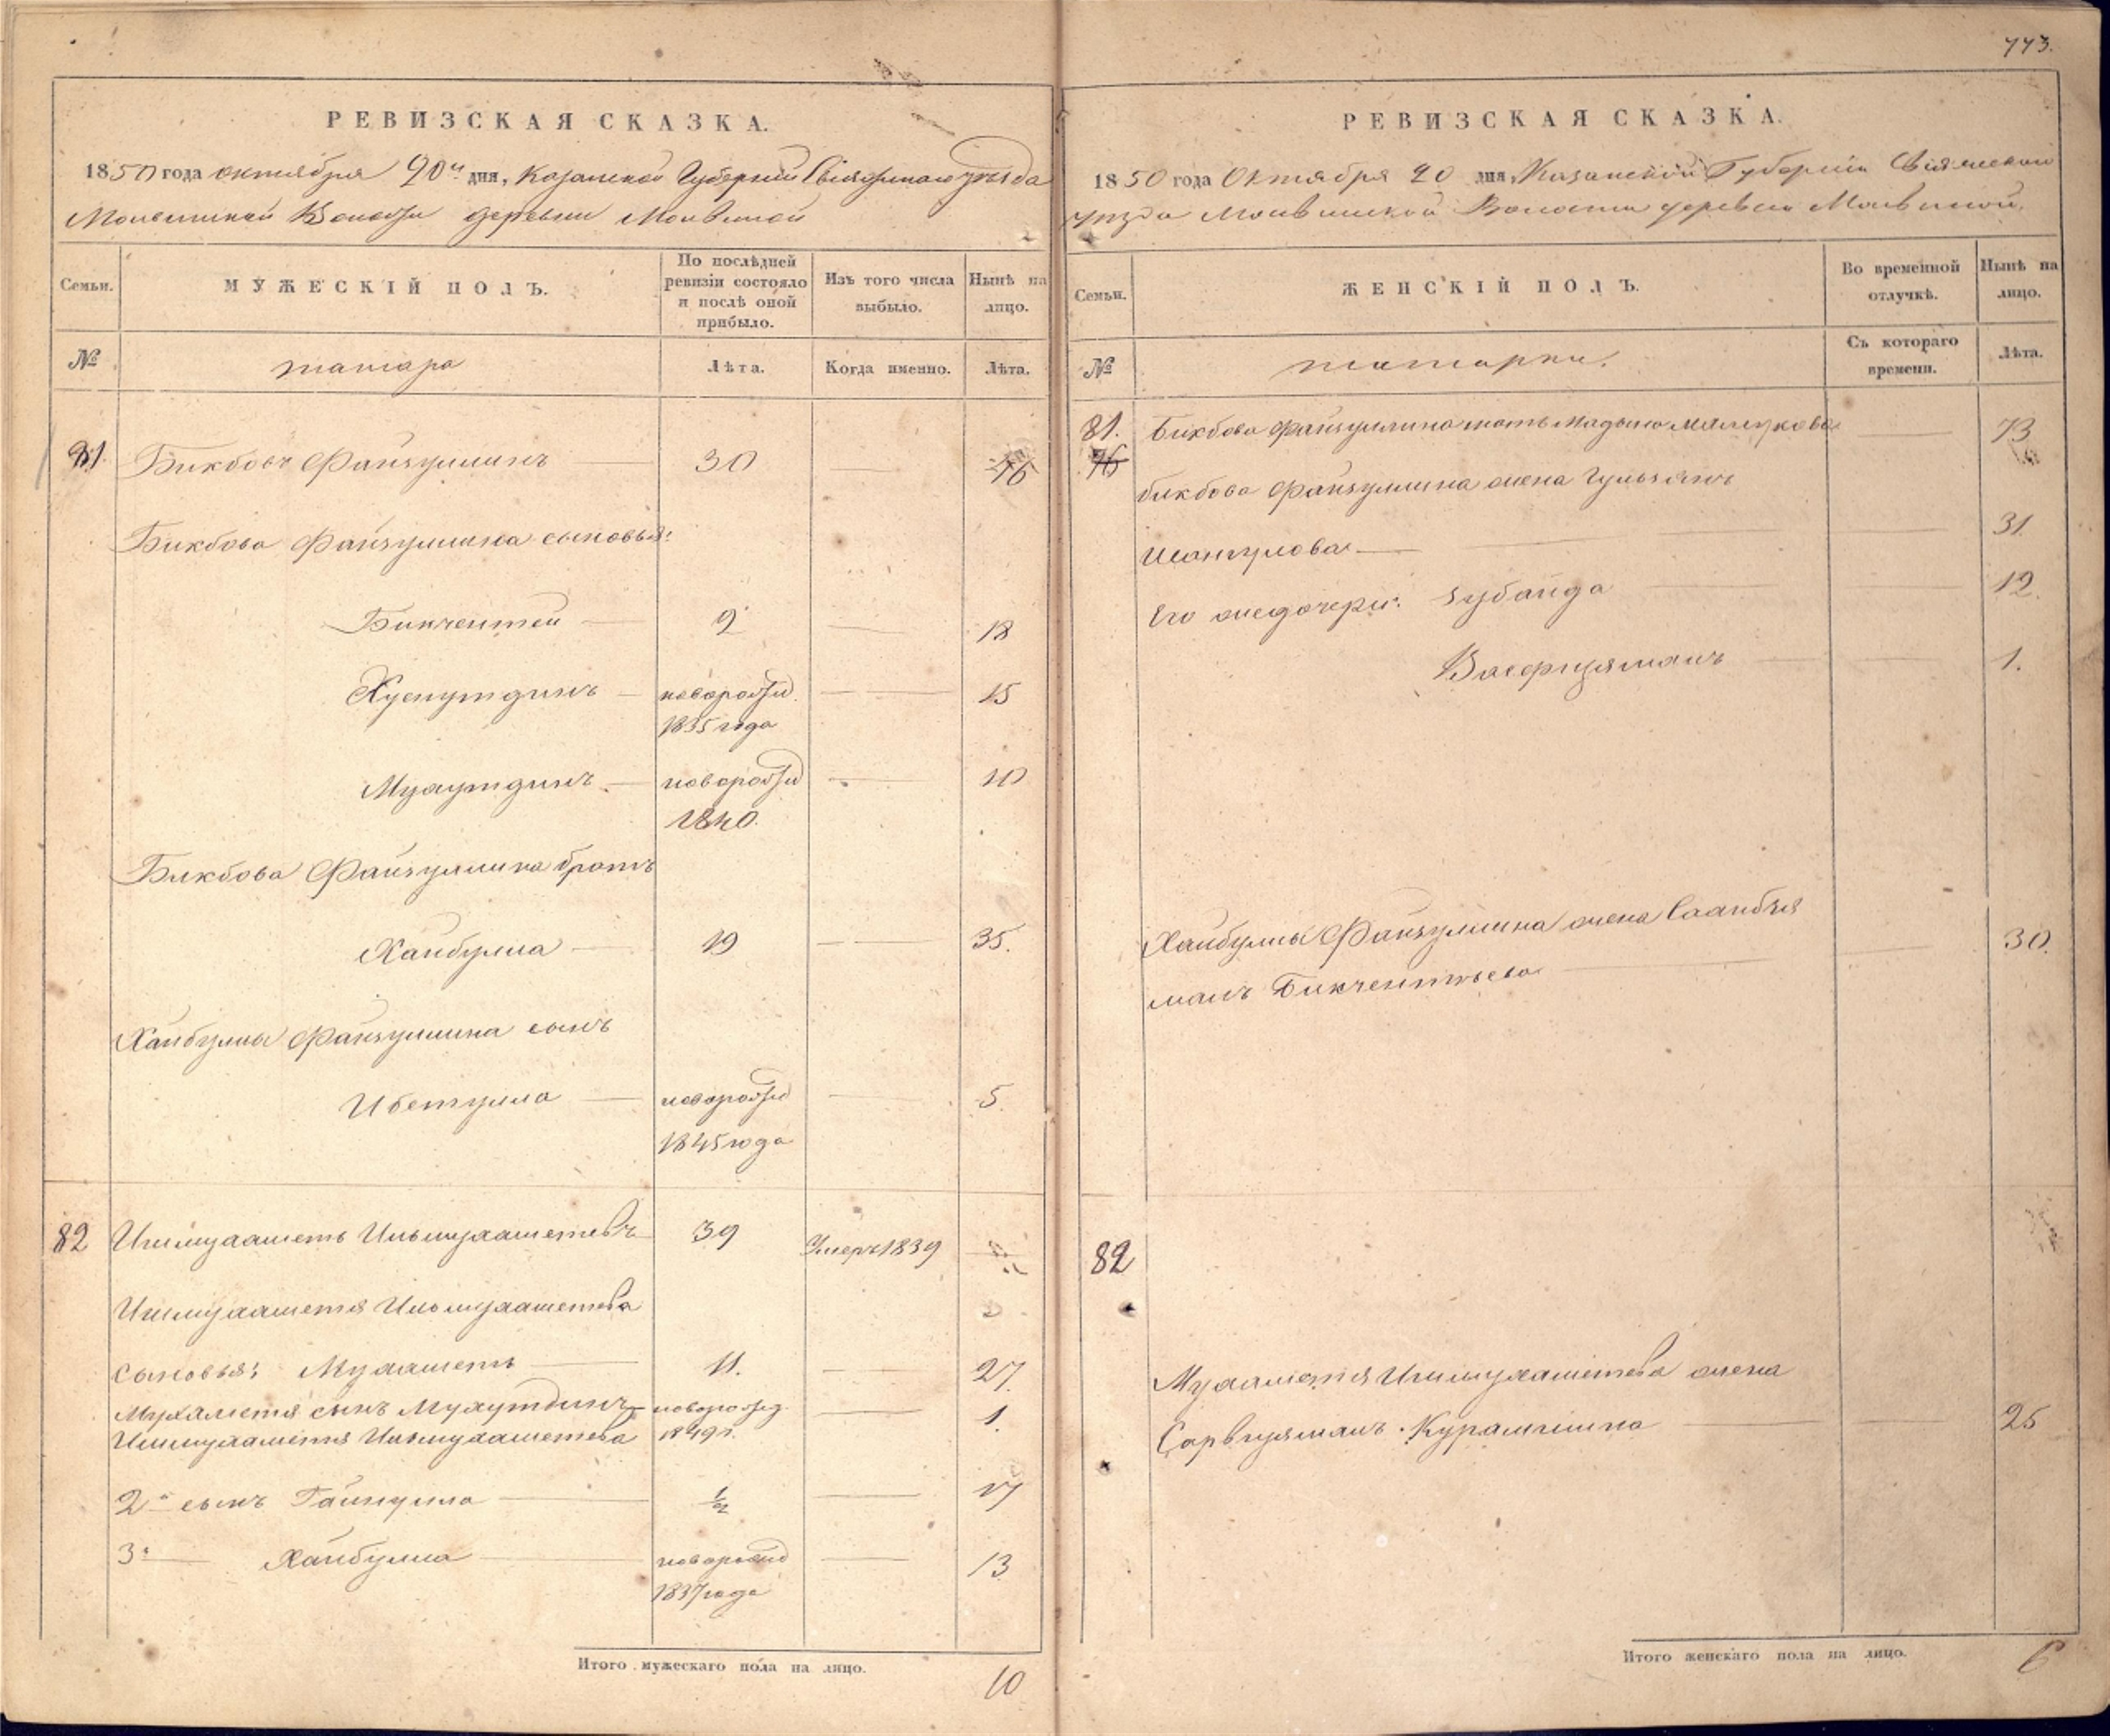 773.
РЕВИЗСКАЯ СКАЗКА.
1850 года октября 20 дня, Казанской Губернии Свіяжскаго уѣзда
Молвинской Волости деревни Молвиной
Семьи.
МУЖЕСКІЙ ПОЛЪ.
По послѣдней ревизіи состояло и послѣ оной прибыло.
Изъ того числа выбыло.
Нынѣ на лицо.
№
татара
Лѣта.
Когда именно.
Лѣта.
81. Бикбовъ Файзуллинъ 30 46
Бикбова Файзуллина сыновья:
Бикчентей 2 18
Хуснутдинъ новорожд. 15
1835 года
Мухутдинъ новорожд 10
1840.
Бикбова Файзуллина братъ
Хайбулла 19 35.
Хайбуллы Файзуллина сынъ
Ибетулла новорожд 5.
1845 года
82 Ишмухаметь Ильмухаметевъ 39 Умеръ 1839
Ишмухаметя Ильмухаметева
сыновья: Мухаметь 11. 27.
Мухаметя сынъ Мухутдинъ новорожд. 1.
Ишмухаметя Ильмухаметева 1849 г.
2й сынъ Гайнулла ½ 17
3й Хайбулла новорожд 13
1837 года
Итого мужескаго пола на лицо.
10
РЕВИЗСКАЯ СКАЗКА.
1850 года Октября 20 дня, Казанской Губерніи Свіяжскаго
уѣзда Молвинской Волости деревни Молвиной.
Семьи.
ЖЕНСКІЙ ПОЛЪ.
Во временной отлучкѣ.
Нынѣ на лицо.
№
татарки.
Съ котораго времени.
Лѣта.
81. Бикбова Файзуллина мать 73
76
бикбова Файзуллина жена Гульзянъ
31.
Его же дочери: Зубайда 12.
1.
Хайбуллы Файзуллина жена Саанбзя
30.
манъ Бикчентьева
82
Мухаметя Ишмухаметева жена
Сарвизяманъ Курамшина 25
Итого женскаго пола на лицо.
6